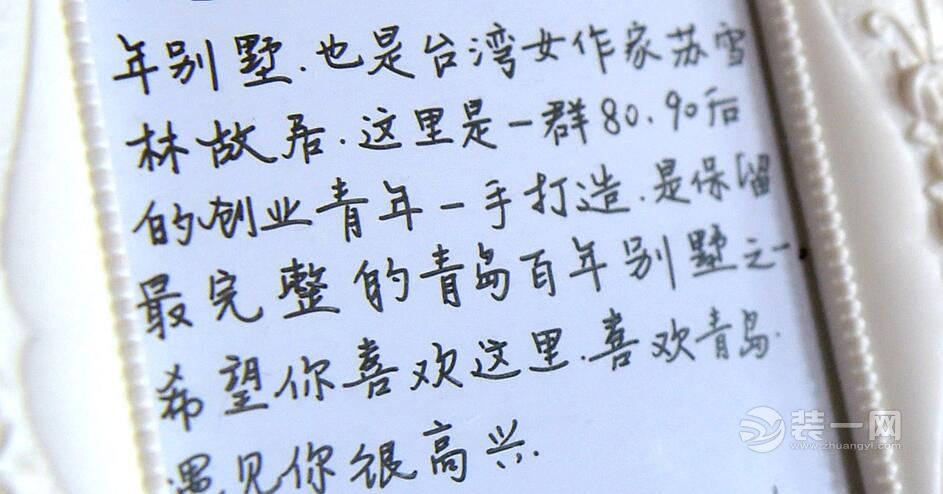 年别墅.也是台湾女作家苏雪
林故居.这里是一群80.90后
的创业青年一手打造.是保留
最完整的青岛百年别墅之一,
希望你喜欢这里.喜欢青岛.
遇见你很高兴.
装一网
www.zhuangyi.com